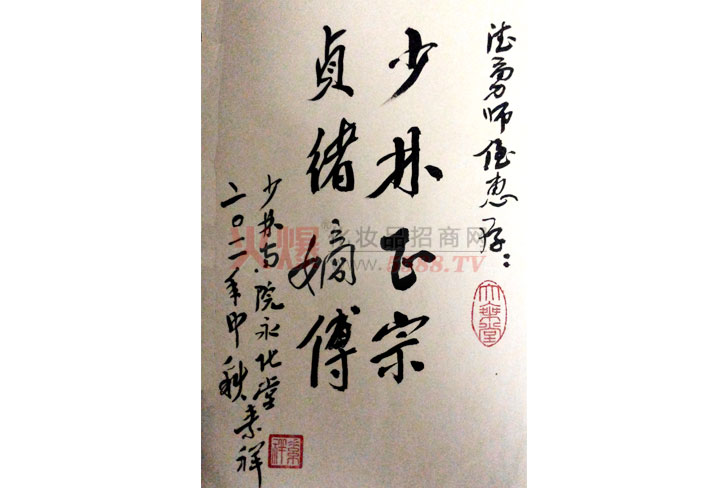 德勇师侄惠存：
少林正宗
贞绪嫡傅
少林寺院永化堂
二〇一一年中秋素祥
火爆化妆品招商网
www.5588.TV